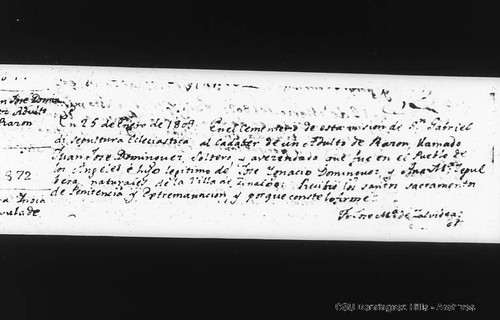 En 25 de Enero de 1809 En el Cementerio de esta mision de Sn. Gabriel
di sepultura Eclesiastica al Cadaver de un Adulto de Razon llamado
Juan Jose Dominguez, Soltero, y avezindado que fue en el Pueblo de
los Angeles é hijo legitimo de Jose Ignacio Dominguez, y Ana Ma. Sepul
beda naturales de la Villa de Sinaloa: Recibió los santos sacramentos
de Penitencia y Extremauncion, y porque conste lo firmé
Fr. Jose Ma. de Zalvidea
Adulto
Razon
872
India
CSU Dominguez Hills - Archives